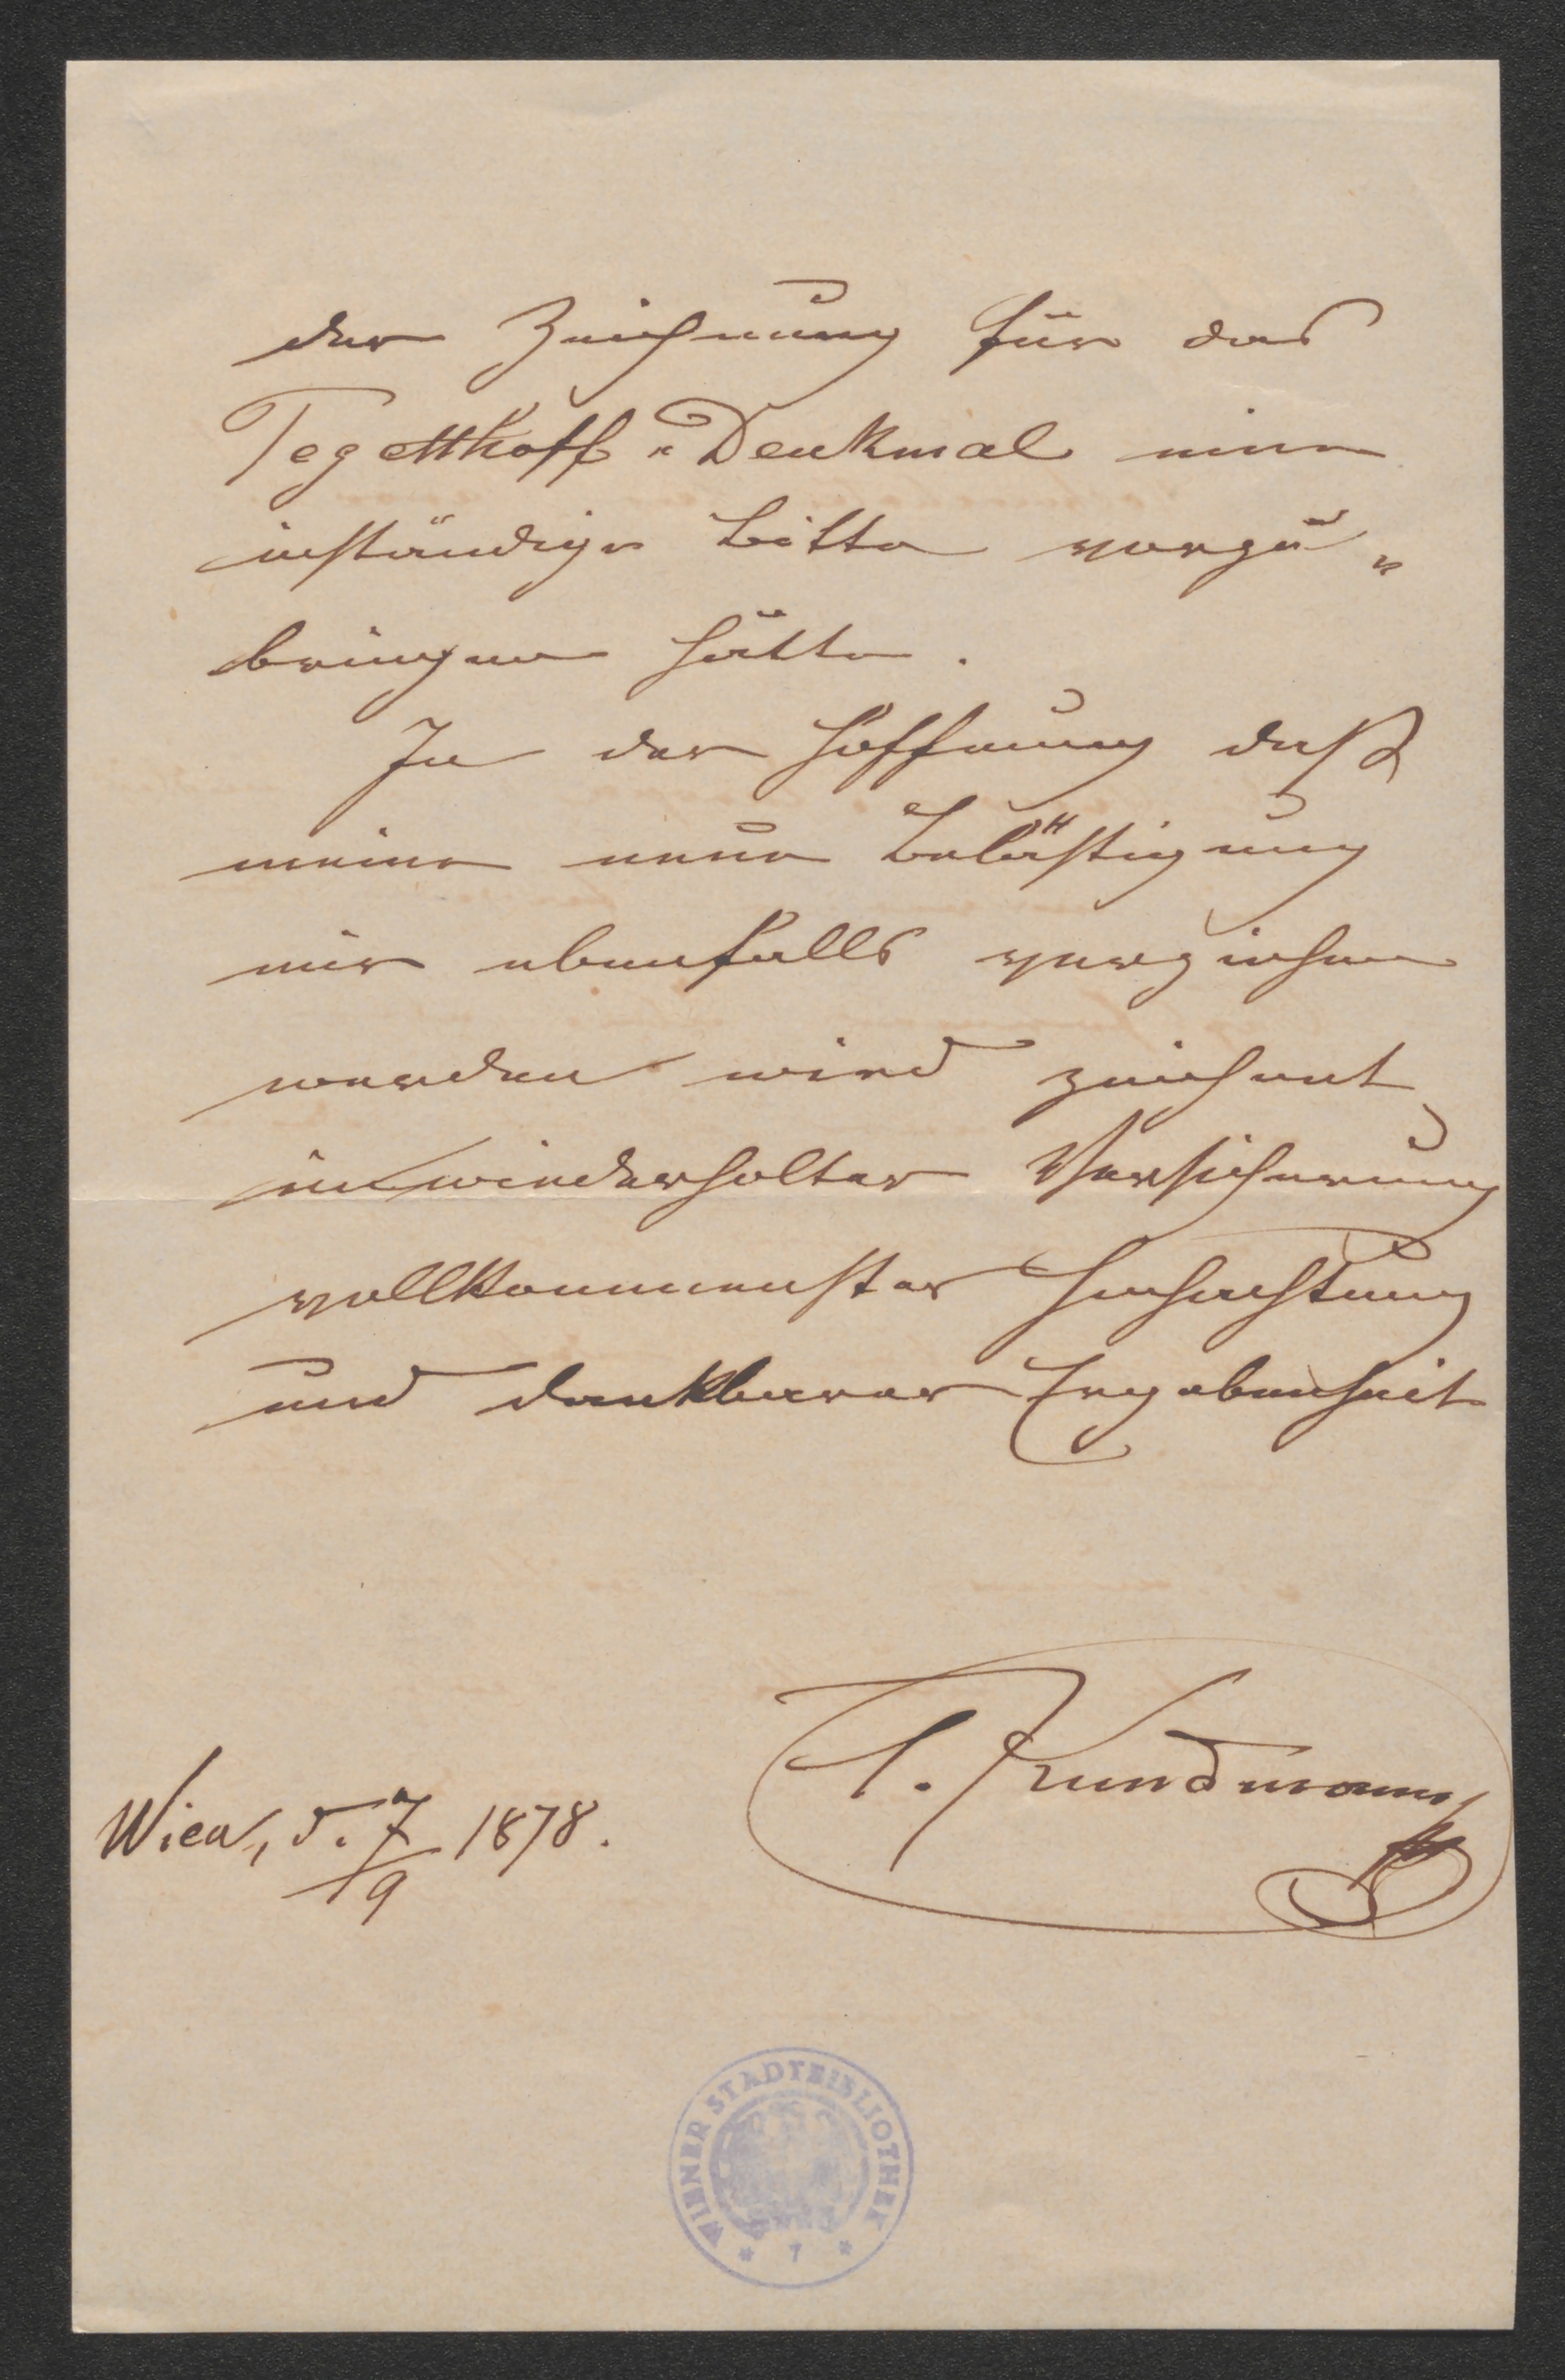 der Zeichnung für das
Tegetthoff-Denkmal eine
inständige Bitte vorzu-
bringen hätte.
In der Hoffnung daß
meine neue Belästigung
mir ebenfalls verziehen
werden wird zeichnet
in wiederholter Versicherung
vollkommenster Hochachtung
und dankbarer Ergebenheit
C. Kundmann
Wien, d. 7/9 1878.
WIENER STADTBIBLIOTHEK
* 7 *